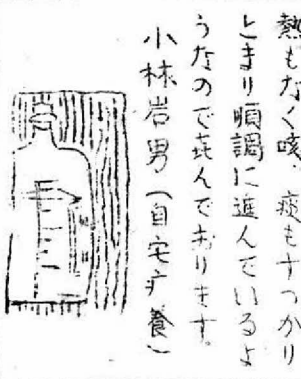 熱もなく咳、痰もすっかり
とまり順調に進んでいるよ
うなので㐂んでおります。
小林岩男(自宅疒養)